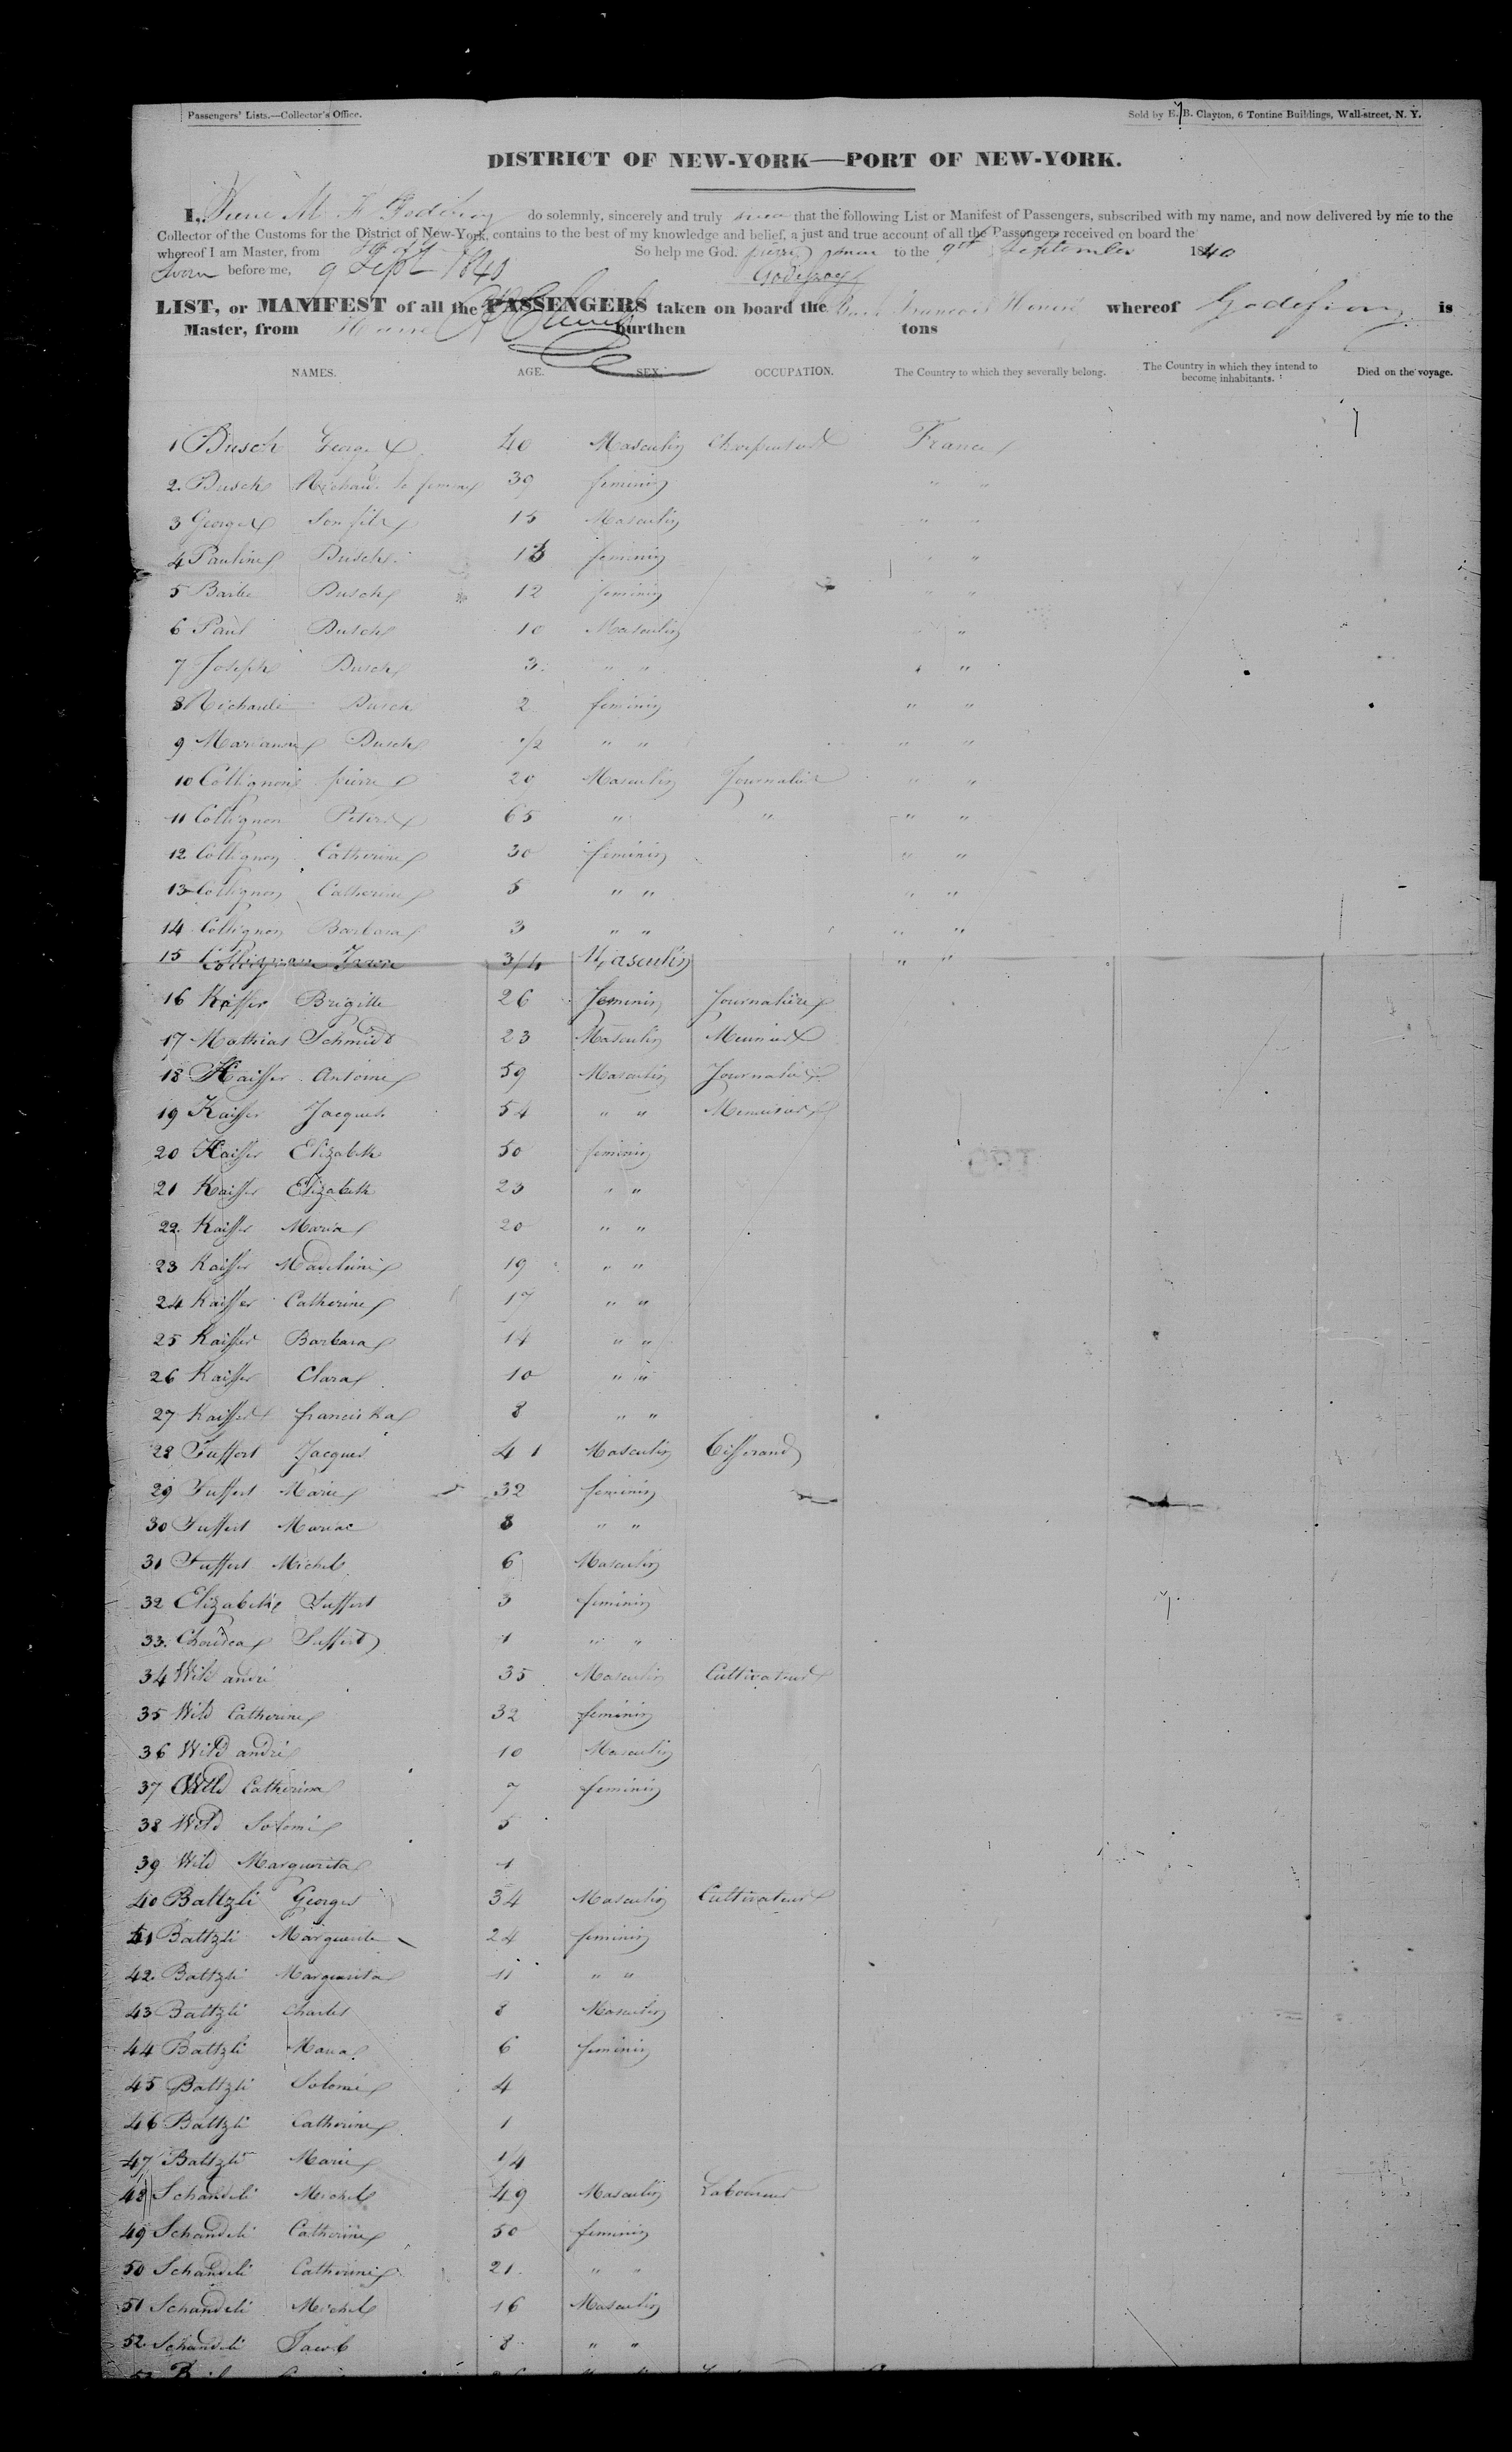 Passengers' Lists.—Collector's Office.
Sold by E. B. Clayton, 6 Tontine Buildings, Wall-street, N. Y.
DISTRICT OF NEW-YORK—PORT OF NEW-YORK.
I, M do solemnly, sincerely and truly that the following List or Manifest of Passengers, subscribed with my name, and now delivered by me to the
Collector of the Customs for the District of New-York, contains to the best of my knowledge and belief, a just and true account of all the Passengers received on board the
whereof I am Master, from So help me God. to the 9th September 1840
Sworn before me, 9 Sept 1840 Godefroy
LIST, or MANIFEST of all the PASSENGERS taken on board the whereof Godefroy is
Master, from burthen tons
NAMES. AGE. SEX. OCCUPATION. The Country to which they severally belong. The Country in which they intend to become inhabitants. Died on the voyage.
1 Busch George 40 Masculin France
2 Busch 39 feminin " "
3 George Son fils 15 Masculin " "
4 Pauline Busch feminin "
5 Barbe Busch 12 feminin " "
6 Paul Busch 10 Masculin "
7 Joseph Busch 3 " " "
8 Busch 2 feminin " "
9 Marianne Busch 1/2 " " " "
10 Collignon pierre 20 Masculin Journalier " "
11 Collignon 65 " " " "
12 Collignon Catherine 30 feminin " "
13 Collignon Catherine 5 " " " "
14 Collignon Barbara 3 " " " "
15 3/4 Masculin " "
16 Kaisser Brigitte 26 feminin Journaliere
17 Mathias Schmidt 23 Masculin Meunier
18 Kaisser Antoine 59 Masculin Journalier
19 Kaisser Jacques 54 " "
20 Kaisser Elizabeth 50 feminin
21 Kaisser Elizabeth 23 " "
22 Kaisser Maria 20 " "
23 Kaisser Madeleine 19 " "
24 Kaisser Catherine 17 " "
25 Kaisser Barbara 14 " "
26 Kaisser Clara 10 " "
27 Kaisser franciska 8 " "
28 Suffert Jacques 41 Masculin Tisserand
29 Suffert Marie 32 feminin
30 Suffert 8 " "
31 Suffert Michel 6 Masculin
32 Suffert 3 feminin
33 Suffert 1 " "
34 Wild andré 35 Masculin Cultivateur
35 Wild Catherine 32 feminin
36 Wild andré 10 Masculin
37 Wild Catherina 7 feminin
38 Wild Solomé 5
39 Wild Marguerita 1
40 Baltzli Georges 34 Masculin Cultivateur
41 Baltzli Marguerite 24 feminin
42 Baltzli Marguerita 11 " "
43 Baltzli Charles 8 Masculin
44 Baltzli Maria 6 feminin
45 Baltzli Solomé 4
46 Baltzli Catherine 1
47 Baltzli Marie 1/4
48 Schandeli Michel 49 Masculin Laboureur
49 Schandeli Catherine 50 feminin
50 Schandeli Catherine 21 " "
51 Schandeli Michel 16 Masculin
52 Schandeli Jacob 8 " "